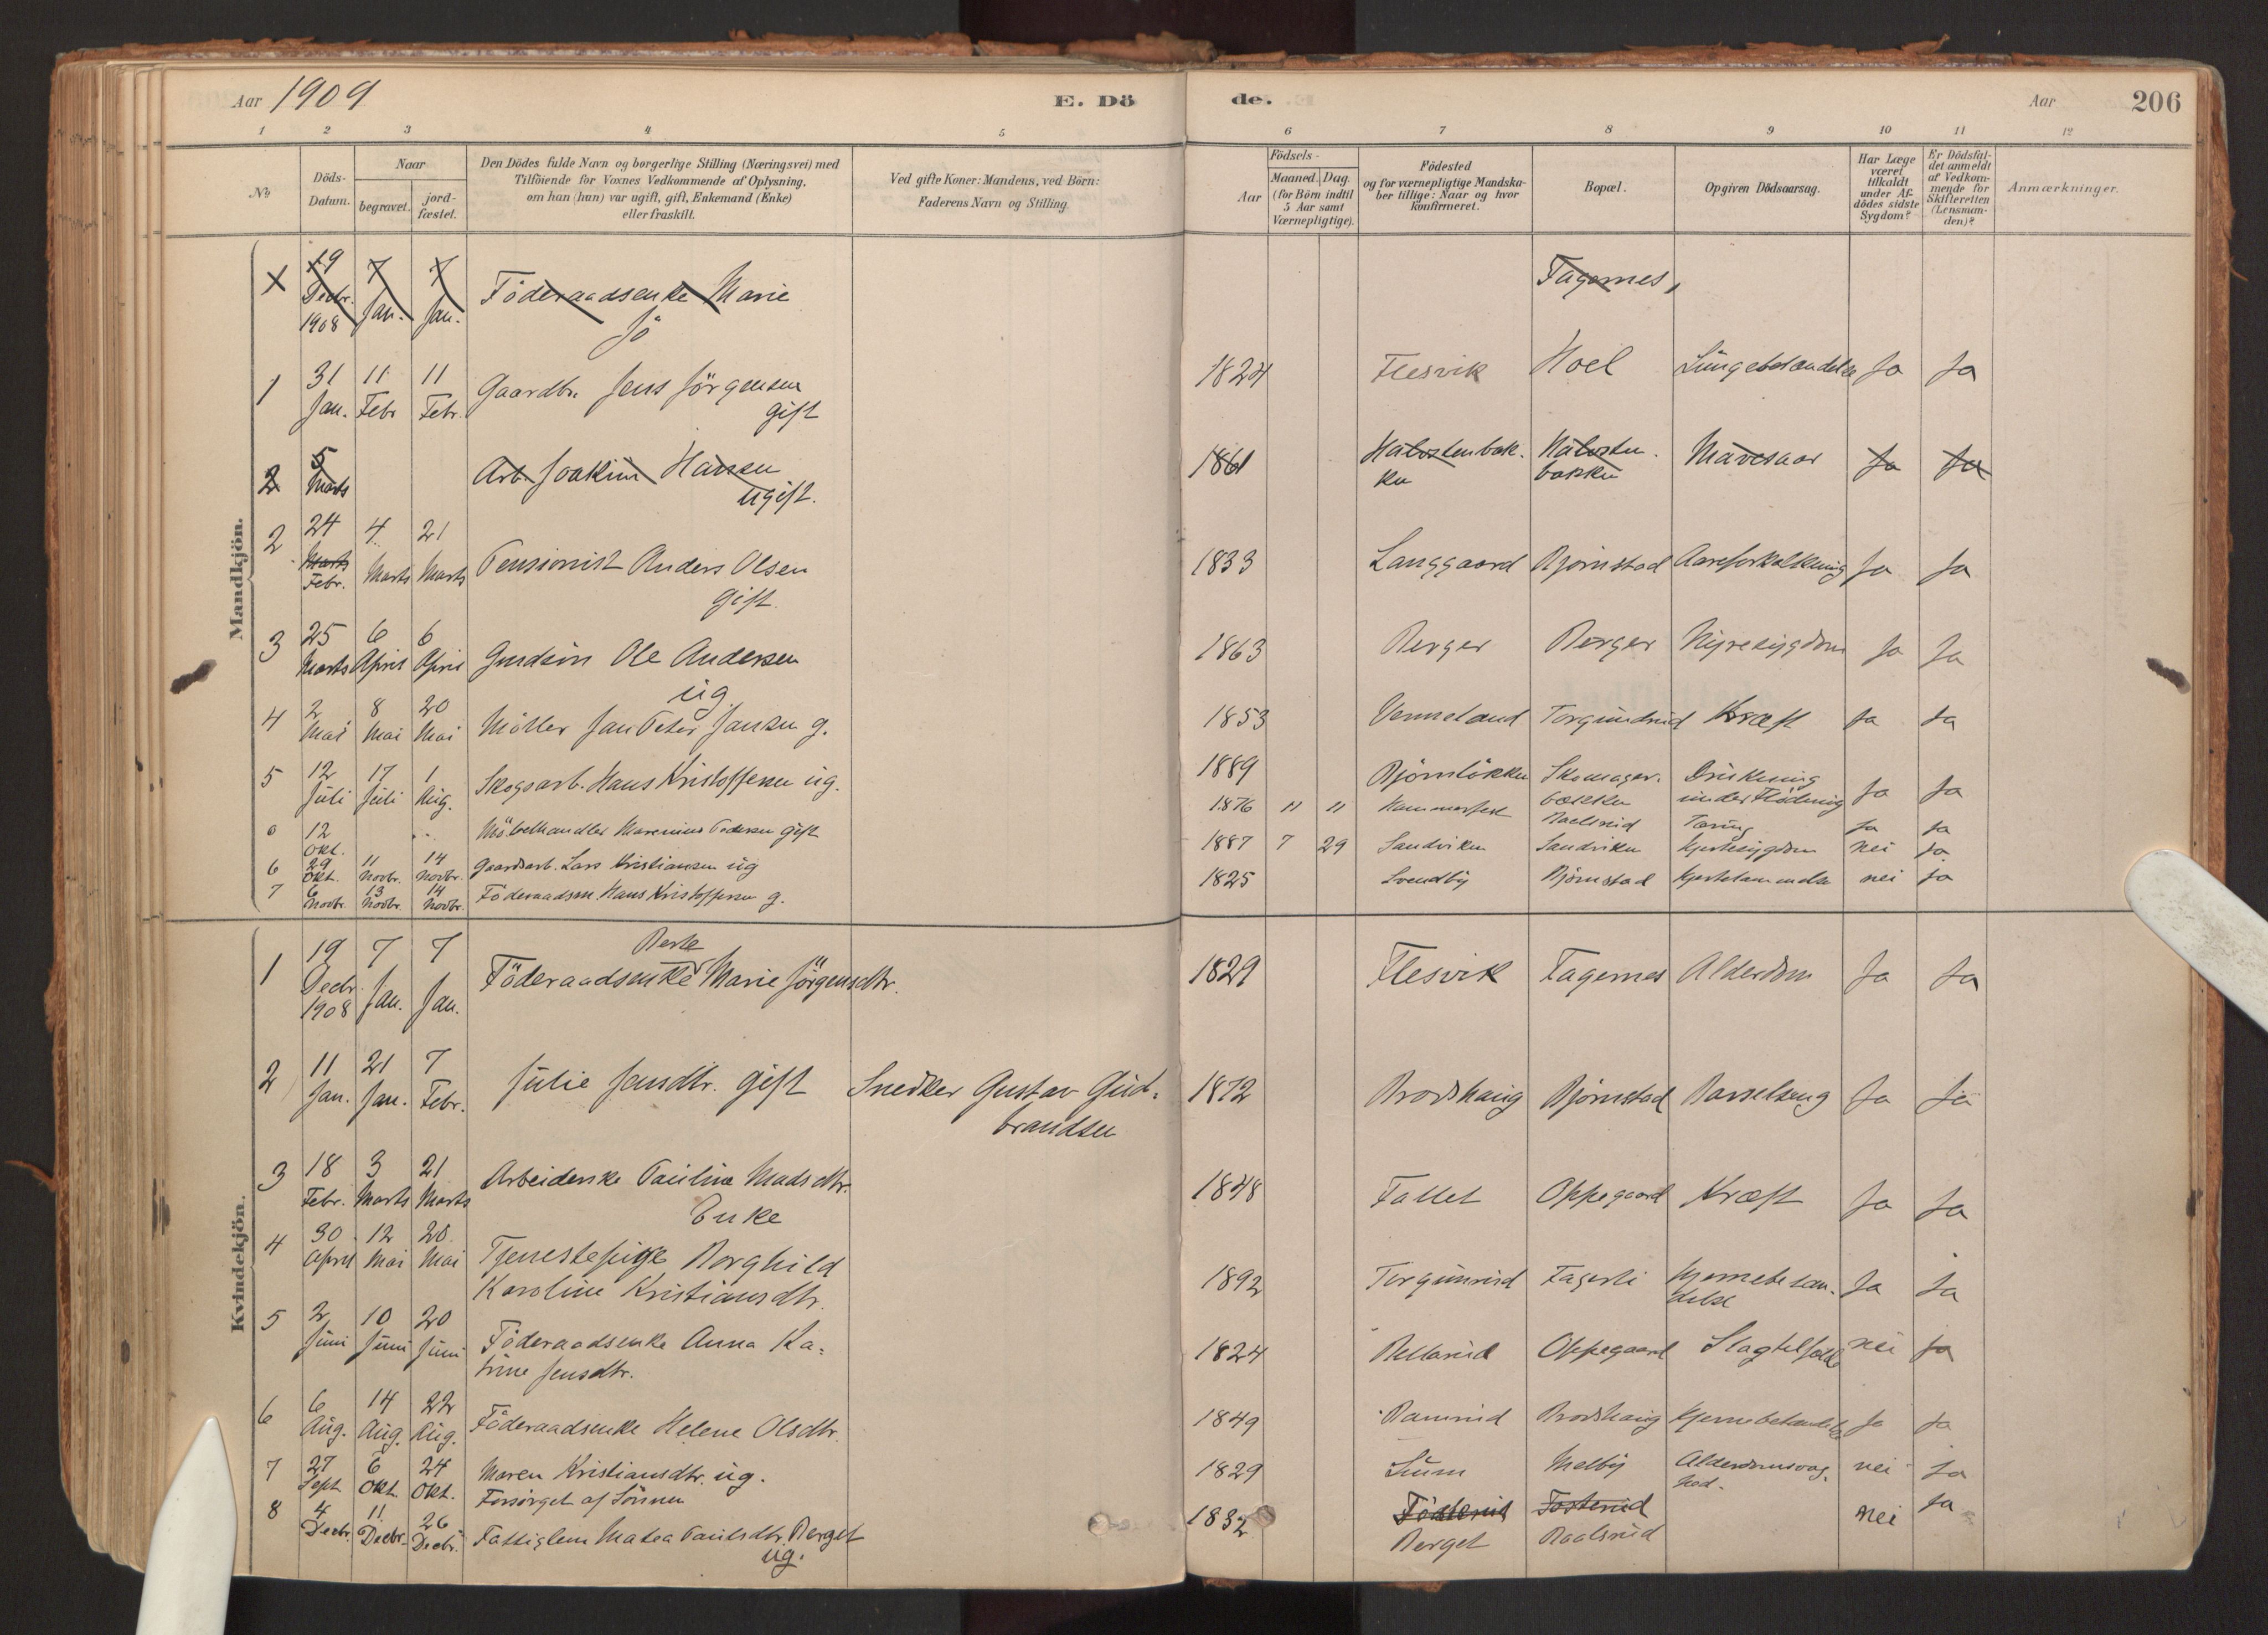 Aar 1909
E. Dö
de.
Aar
206
1 2 3 4 5 6 7 8 9 10 11 12
No
Döds-
Datum.
Naar
begravet.
jord-
fæstet.
Den Dödes fulde Navn og borgerlige Stilling (Næringsvei) med
Tilföiende for Voxnes Vedkommende af Oplysning,
om han (hun) var ugift, gift, Enkemand (Enke)
eller fraskilt.
Ved gifte Koner: Mandens, ved Börn:
Faderens Navn og Stilling.
Födsels-
Aar
Maaned.
Dag.
(for Börn indtil
5 Aar samt
Værnepligtige).
Födested
og for værnepligtige Mandska-
ber tillige: Naar og hvor
konfirmeret.
Bopæl.
Opgiven Dödsaarsag.
Har Læge
været
tilkaldt
under Af-
dödes sidste
Sygdom?
Er Dödsfal-
det anmeldt
af Vedkom-
mende for
Skifteretten
(Lensman-
den)?
Anmærkninger.
Mandkjön.
19 7 7
Decbr. Jan. Jan. Föderaadsenke Marie Fagernes,
1908 Jö
1 31 11 11 Gaardbr. Jens Jörgensen 1824 Flesvik Hoel Lungebetændelse Ja Ja
Jan. Febr Febr. gift
2 5 Arb. Joakim Hansen 1861 Mavesaar Ja Ja
Marts ugift.
2 24 4 21
Marts
Febr. Marts Marts Pensionist Anders Olsen 1833 Langgaard Björnstad Aareforkalkning Ja Ja
gift.
3 25 6 6
Marts April April Gaardsön Ole Andersen 1863 Berger Berger Nyresygdom Ja Ja
ug.
4 2 8 20
Mai Mai Mai Möller Jan Peter Jansen g. 1853 Venneland Torgundrud Kræft Ja Ja
5 12 17 1
Juli Juli Aug. Skogsarb. Hans Kristoffersen ug. 1889 Björnlökken Skomager- Drukning
bakken under Flödning Ja Ja
0 12
Okt. Möbelhandler Marenius Pedersen gift 1876 11 11 Hammerfest Baalsrud Tæring Ja Ja
6 29 11 14
Okt. Novbr. Novbr. Gaardsarb. Lars Kristiansen ug 1887 7 29 Sandviken Sandviken Hjertesygdom nei ja
7 6 13 14
Novbr. Novbr. Novbr. Föderaadsm. Hans Kristoffersen g. 1825 Svendby Björnstad Hjertelammelse nei ja
Kvindekjön.
1 19 7 7 Berte
Decbr. Jan. Jan. Föderaadsenke Marie Jörgensdtr. 1829 Flesvik Fagernes Alderdom Ja Ja
1908
2 11 21 7
Jan. Jan. Febr. Julie Jensdtr. gift Snedker Gustav Gud- 1872 Brodshaug Björnstad Barselseng Ja Ja
brandsen
3 18 3 21
Febr. Marts Marts Arbeiderske Pauline Madsdtr. 1848 Fallet Oppegaard Kræft Ja Ja
Enke
4 30 12 20
April Mai Mai Tjenestepige Borghild
Karoline Kristiansdtr. 1892 Torgunrud Fagerli Hjernebetæn- Ja Ja
delse
5 2 10 20
Juni Juni Juni Föderaadsenke Anna Ka-
trine Jensdtr. 1824 Oppegaard Slagtilfælde nei Ja
6 6 14 22
Aug. Aug. Aug. Föderaadsenke Helene Olsdtr. 1849 Ramrud Brodshaug Hjernebetændelse Ja Ja
7 27 6 24 Maren Kristiansdtr. ug.
Sept. Okt. Okt. Forsörget af Sönnen 1829 Lium Melby Alderdomssvag- nei Ja
hed.
8 4 11 26
Decbr. Decbr. Decbr. Fattiglem Matea Paulsdtr. Berget 1832 Fosterud nei Ja
ug. Berget Baalsrud